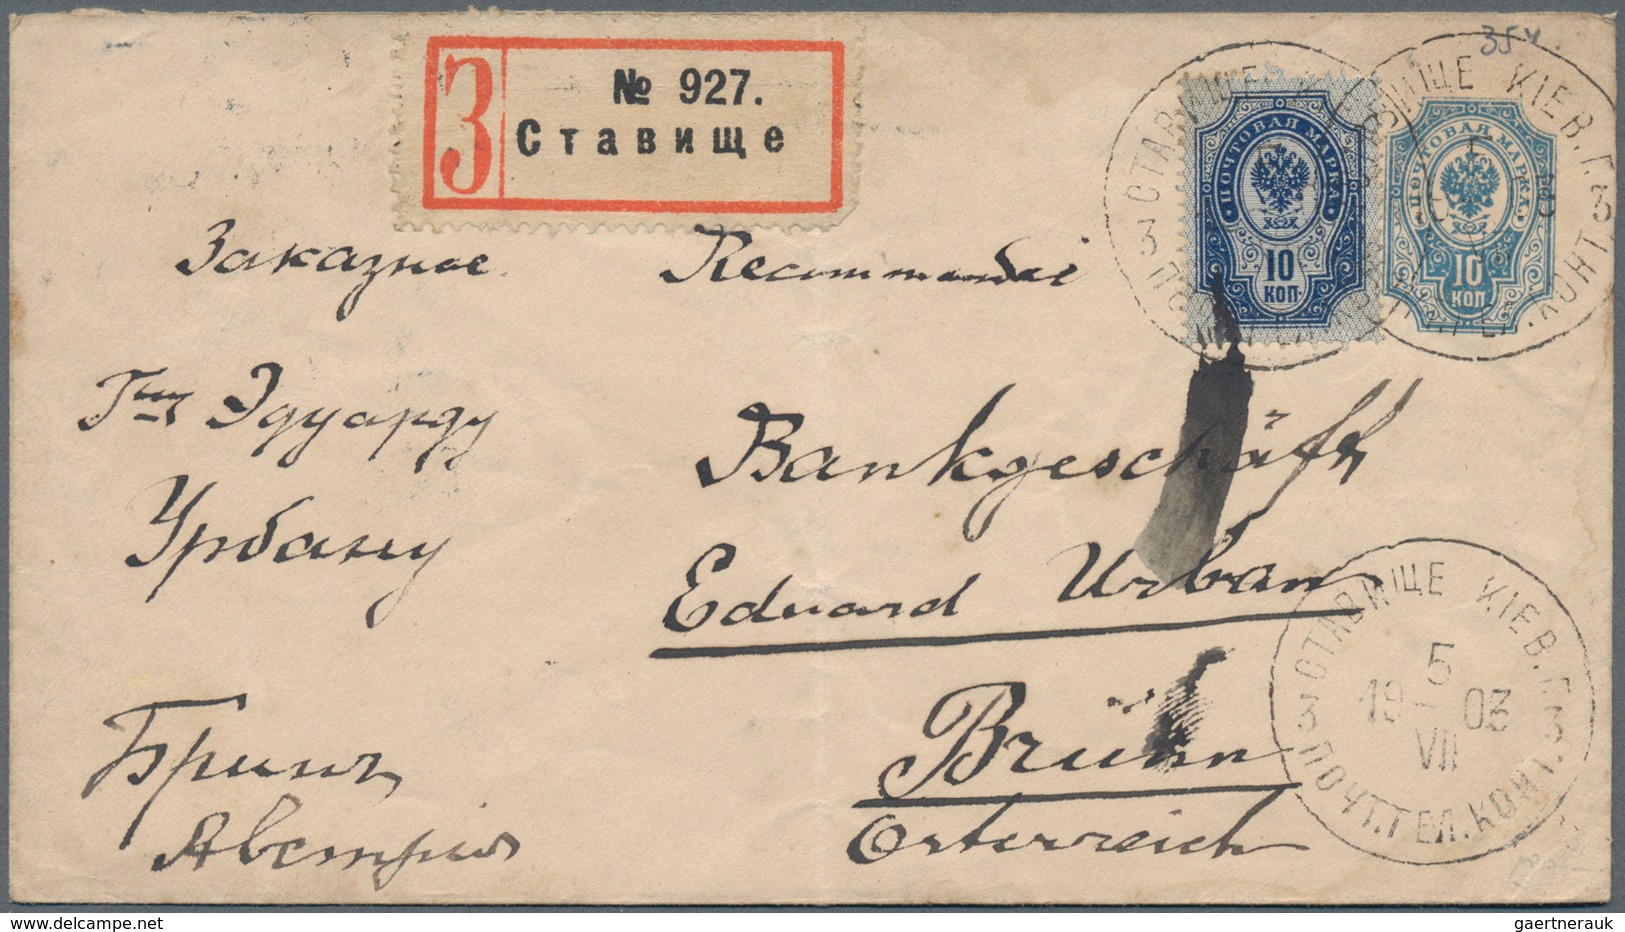 354
З
№ 927.
Ставище
ПОЧТОВАЯ МАРКА
10
КОП
ПОЧТОВАЯ МАРКА
10
КОП
СТАВИЩЕ КІЕВ. Г.
3 ПОЧТ. ТЕЛ. КОНТ. 3
Заказное Recommandei
Гну Эдуарду
Урбану
Bankgeschäft
Eduard Urban
Brünn
Österreich
Бринъ
Австрія
СТАВИЩЕ КІЕВ. Г.
5
19 03
VII
3 ПОЧТ. ТЕЛ. КОНТ. 3
gaertnerauk